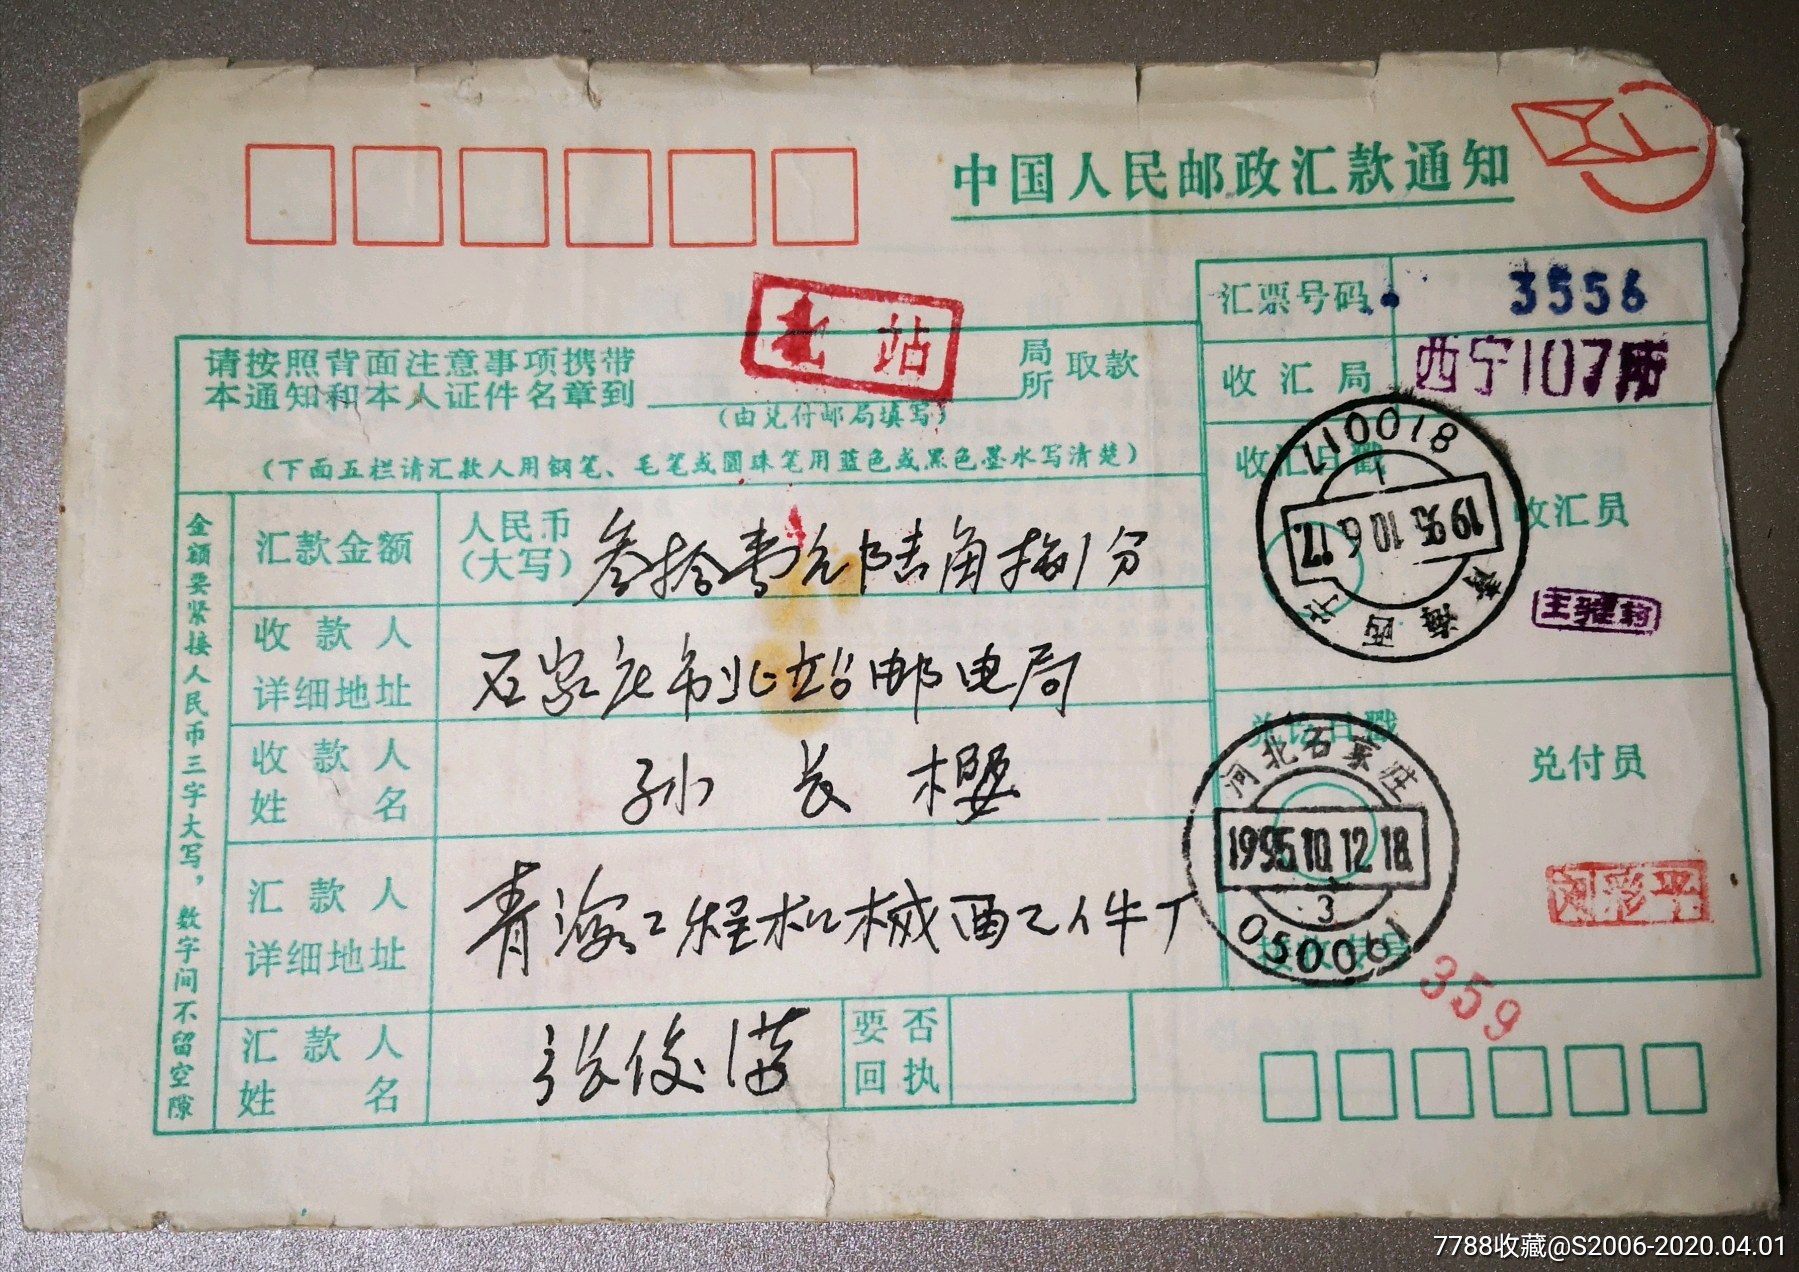 中国人民邮政汇款通知
汇票号码 3556
北站
请按照背面注意事项携带
本通知和本人证件名章到 局所 取款
(由兑付邮局填写)
收汇局 西宁107所
(下面五栏请汇款人用钢笔、毛笔或圆珠笔用蓝色或黑色墨水写清楚)
收汇日戳 收汇员
810011
1995.10.6.17.
青海西宁
金额要紧接人民币三字大写，数字间不留空隙
汇款金额 人民币(大写) 叁拾壹元陆角捌分
收款人详细地址 石家庄市北站邮电局
收款人姓名 孙长樱
兑付日戳 兑付员
河北石家庄
1995.10.12.18
3
050061
刘彩平
汇款人详细地址 青海工程机械配件厂
359
汇款人姓名 张俊
要否回执
7788收藏@S2006-2020.04.01